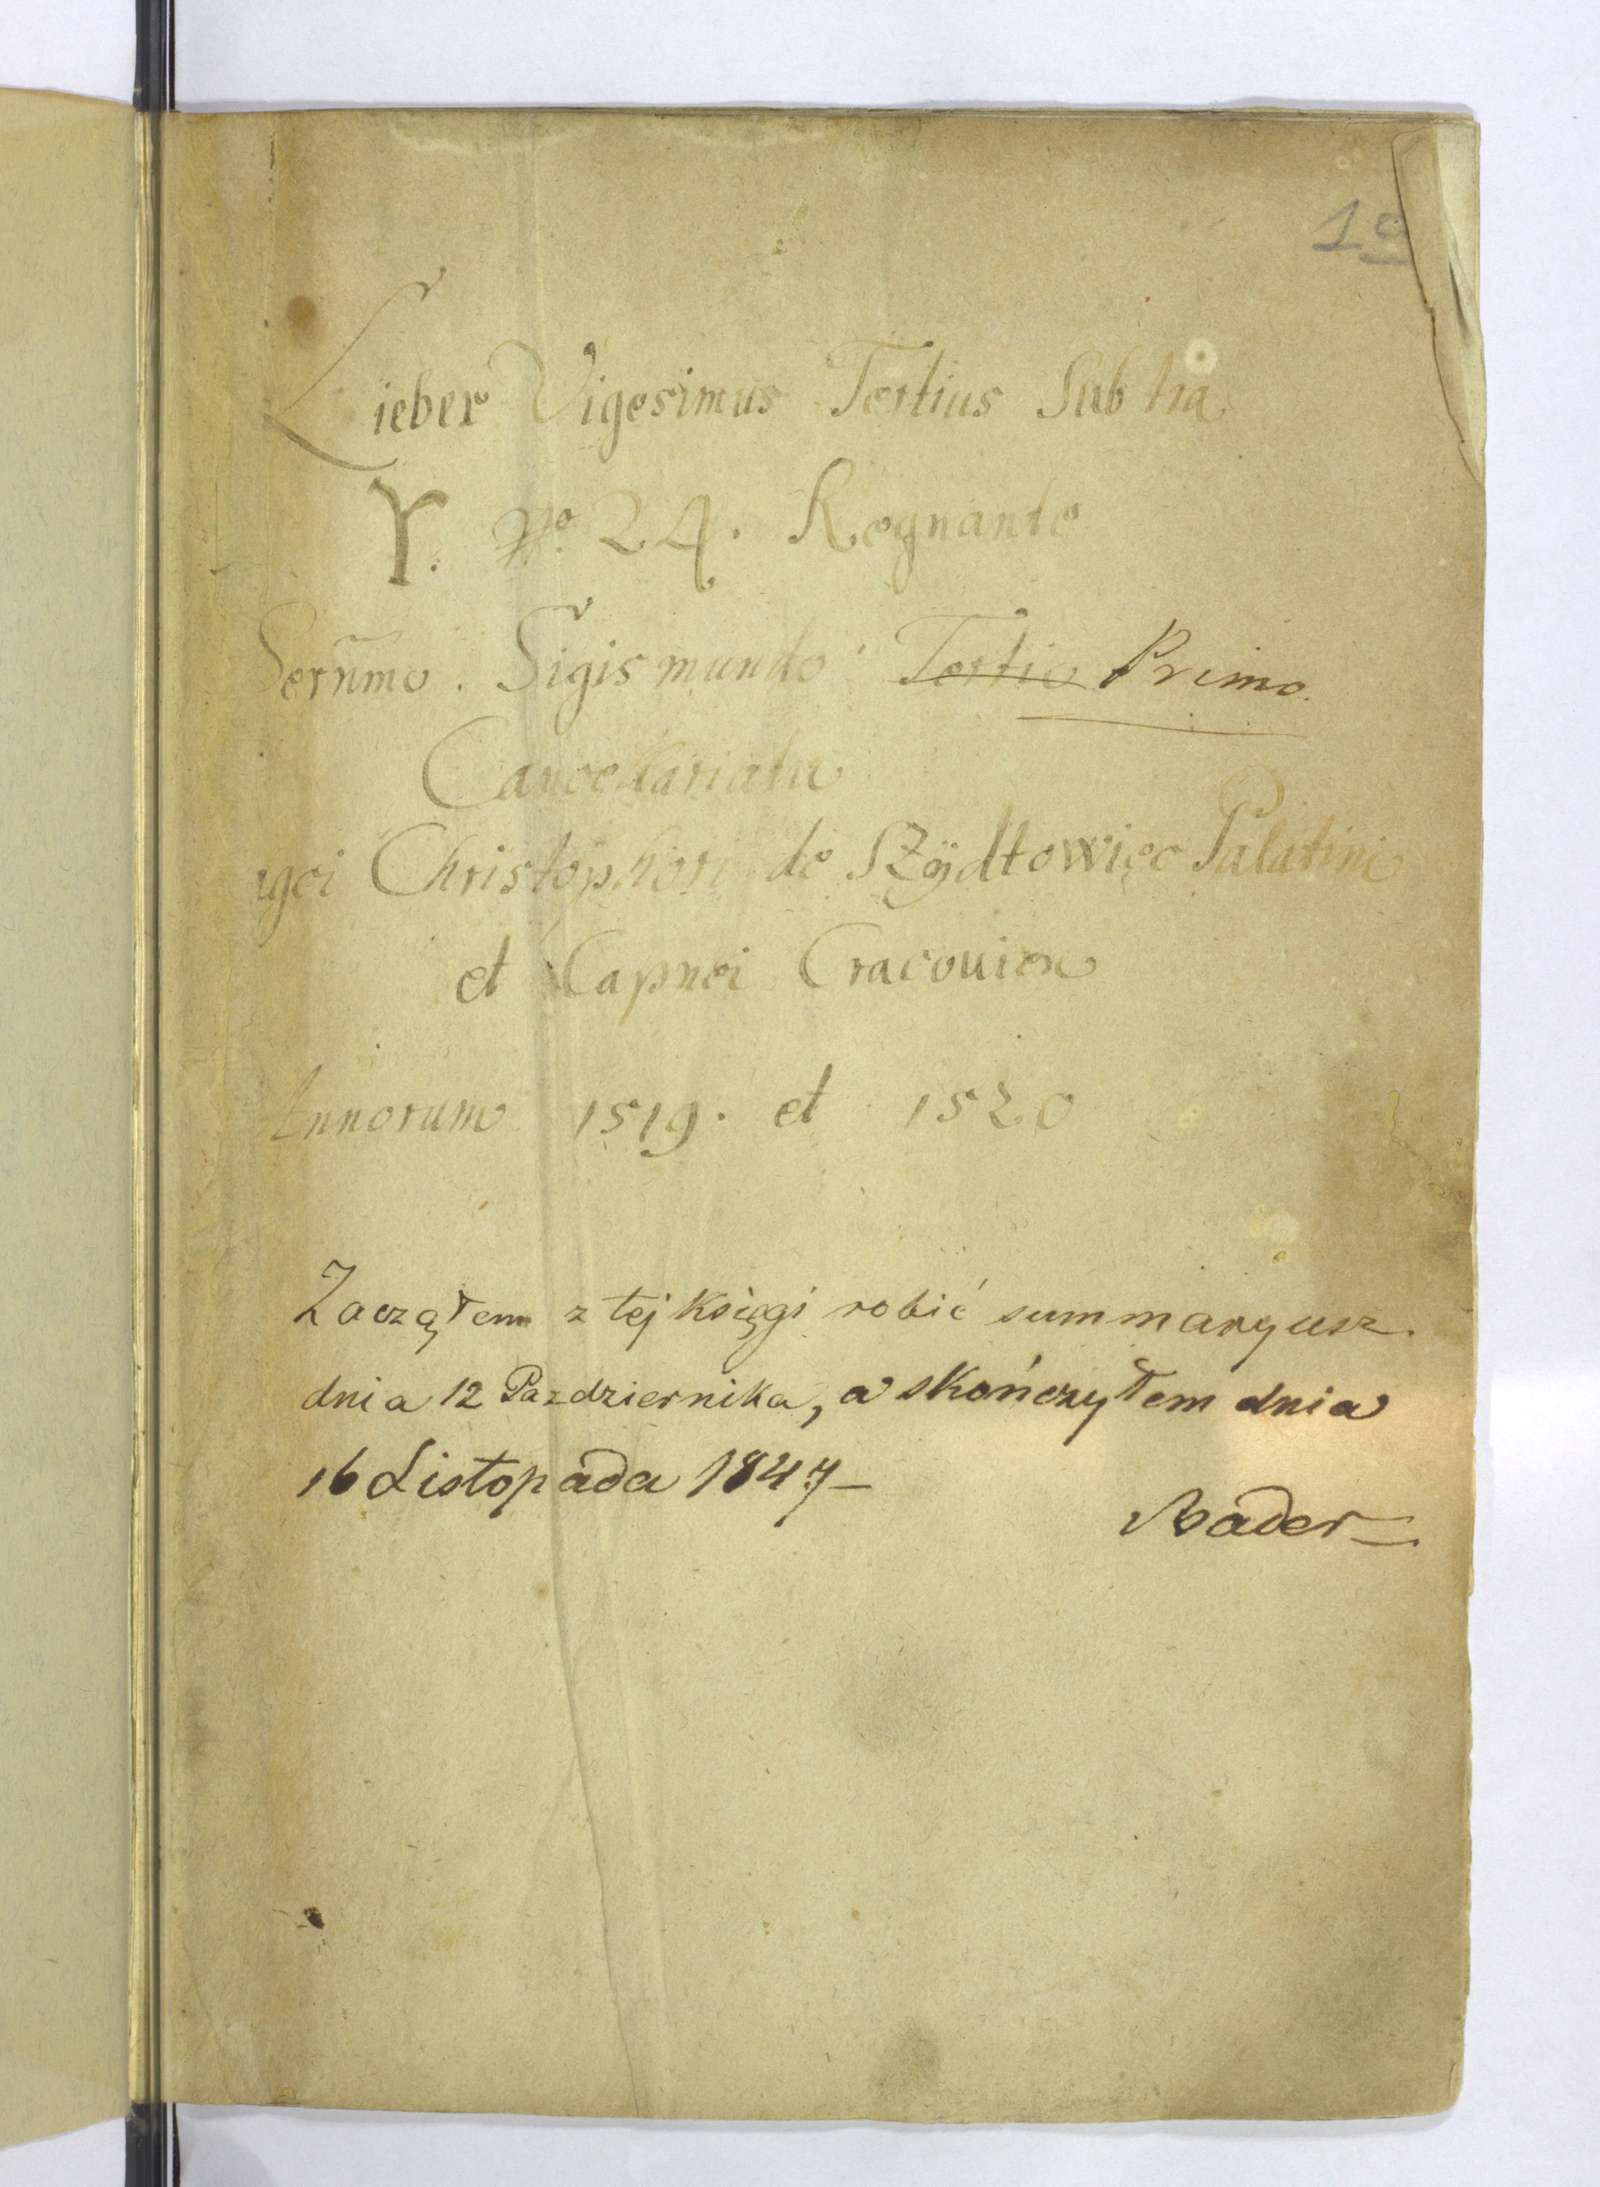 19
Lieber Vigesimus Tertius Sub tra
Y. No 24. Regnante
Serñmo. Sigismundo Tertio Primo.
Cancellariatu
Christophori de Szÿdłowiec Palatini
et Capnei Cracouien
Annorum 1519. et 1520
Zacząłem z tej Księgi robić summaryusz.
dnia 12 Pazdziernika, a skończyłem dnia
16 Listopada 1847 –
Bader